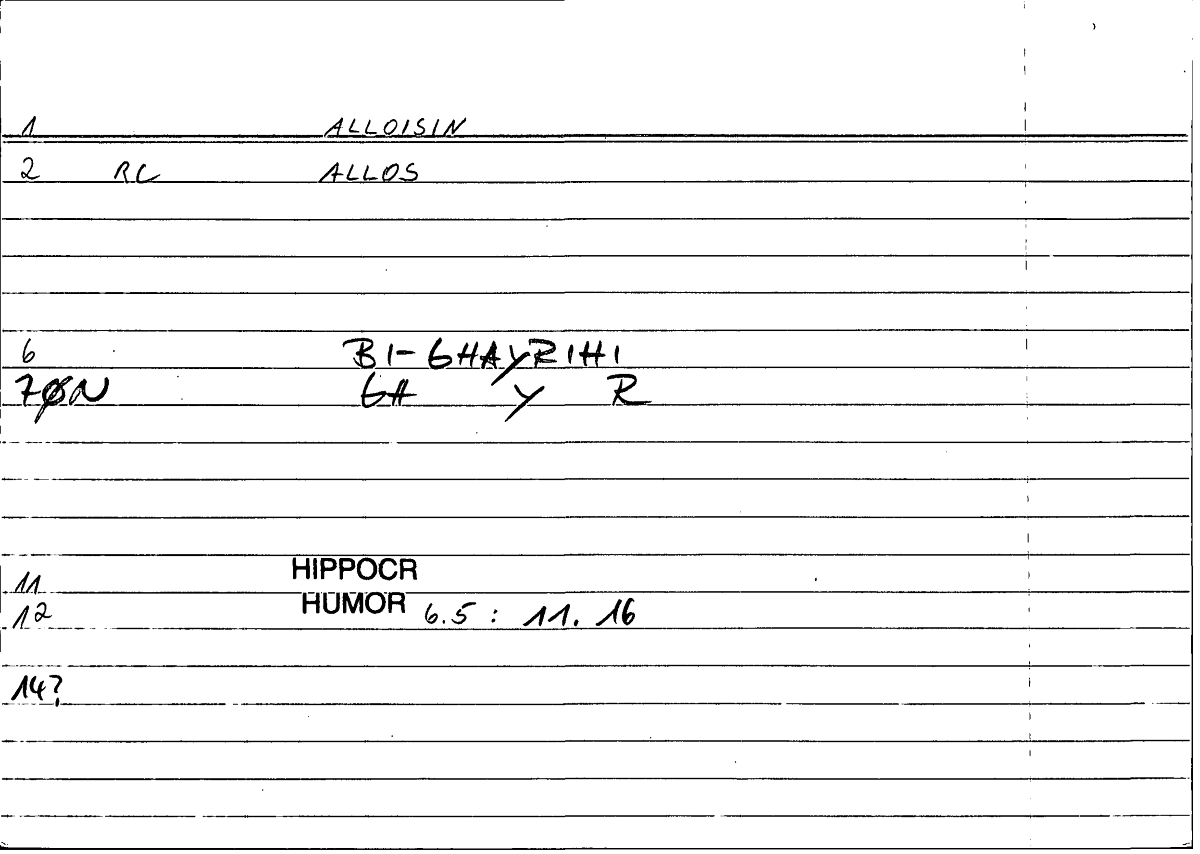 1 ALLOISIN
2 RC ALLOS
6 BI-GHAYRIHI
7ØN GH Y R
11 HIPPOCR
12 HUMOR 6.5 : 11. 16
14?